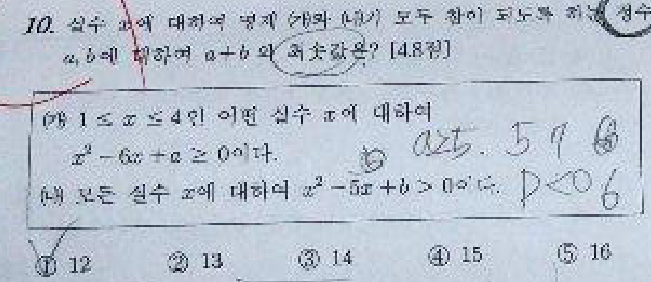 10. 실수 x에 대하여 명제 (가)와 (나)가 모두 참이 되도록 하는 정수
a, b에 대하여 a+b의 최솟값은? [4.8점]
(가) 1 ≤ x ≤ 4인 어떤 실수 x에 대하여
x² - 6x + a ≥ 0이다.
a≥5. 5 7
(나) 모든 실수 x에 대하여 x² - 5x + b > 0이다.
D<0 6
① 12 ② 13 ③ 14 ④ 15 ⑤ 16